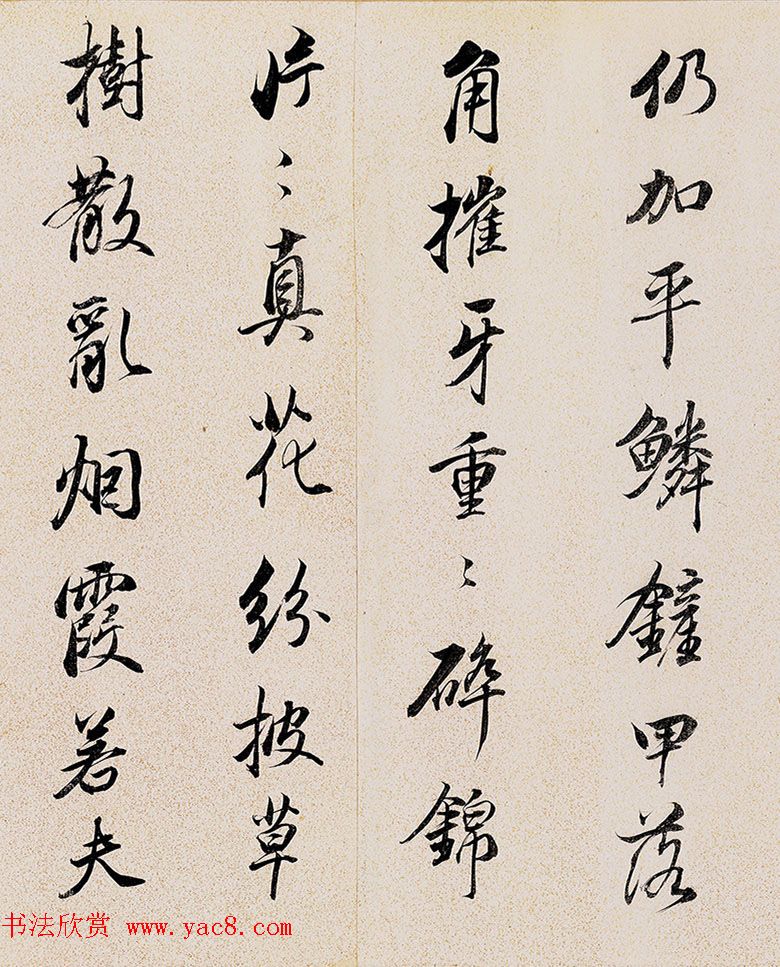 仍加平鱗鏟甲落
角摧牙重〻碎錦
片〻真花紛披草
樹散亂烟霞若夫
书法欣赏 www.yac8.com